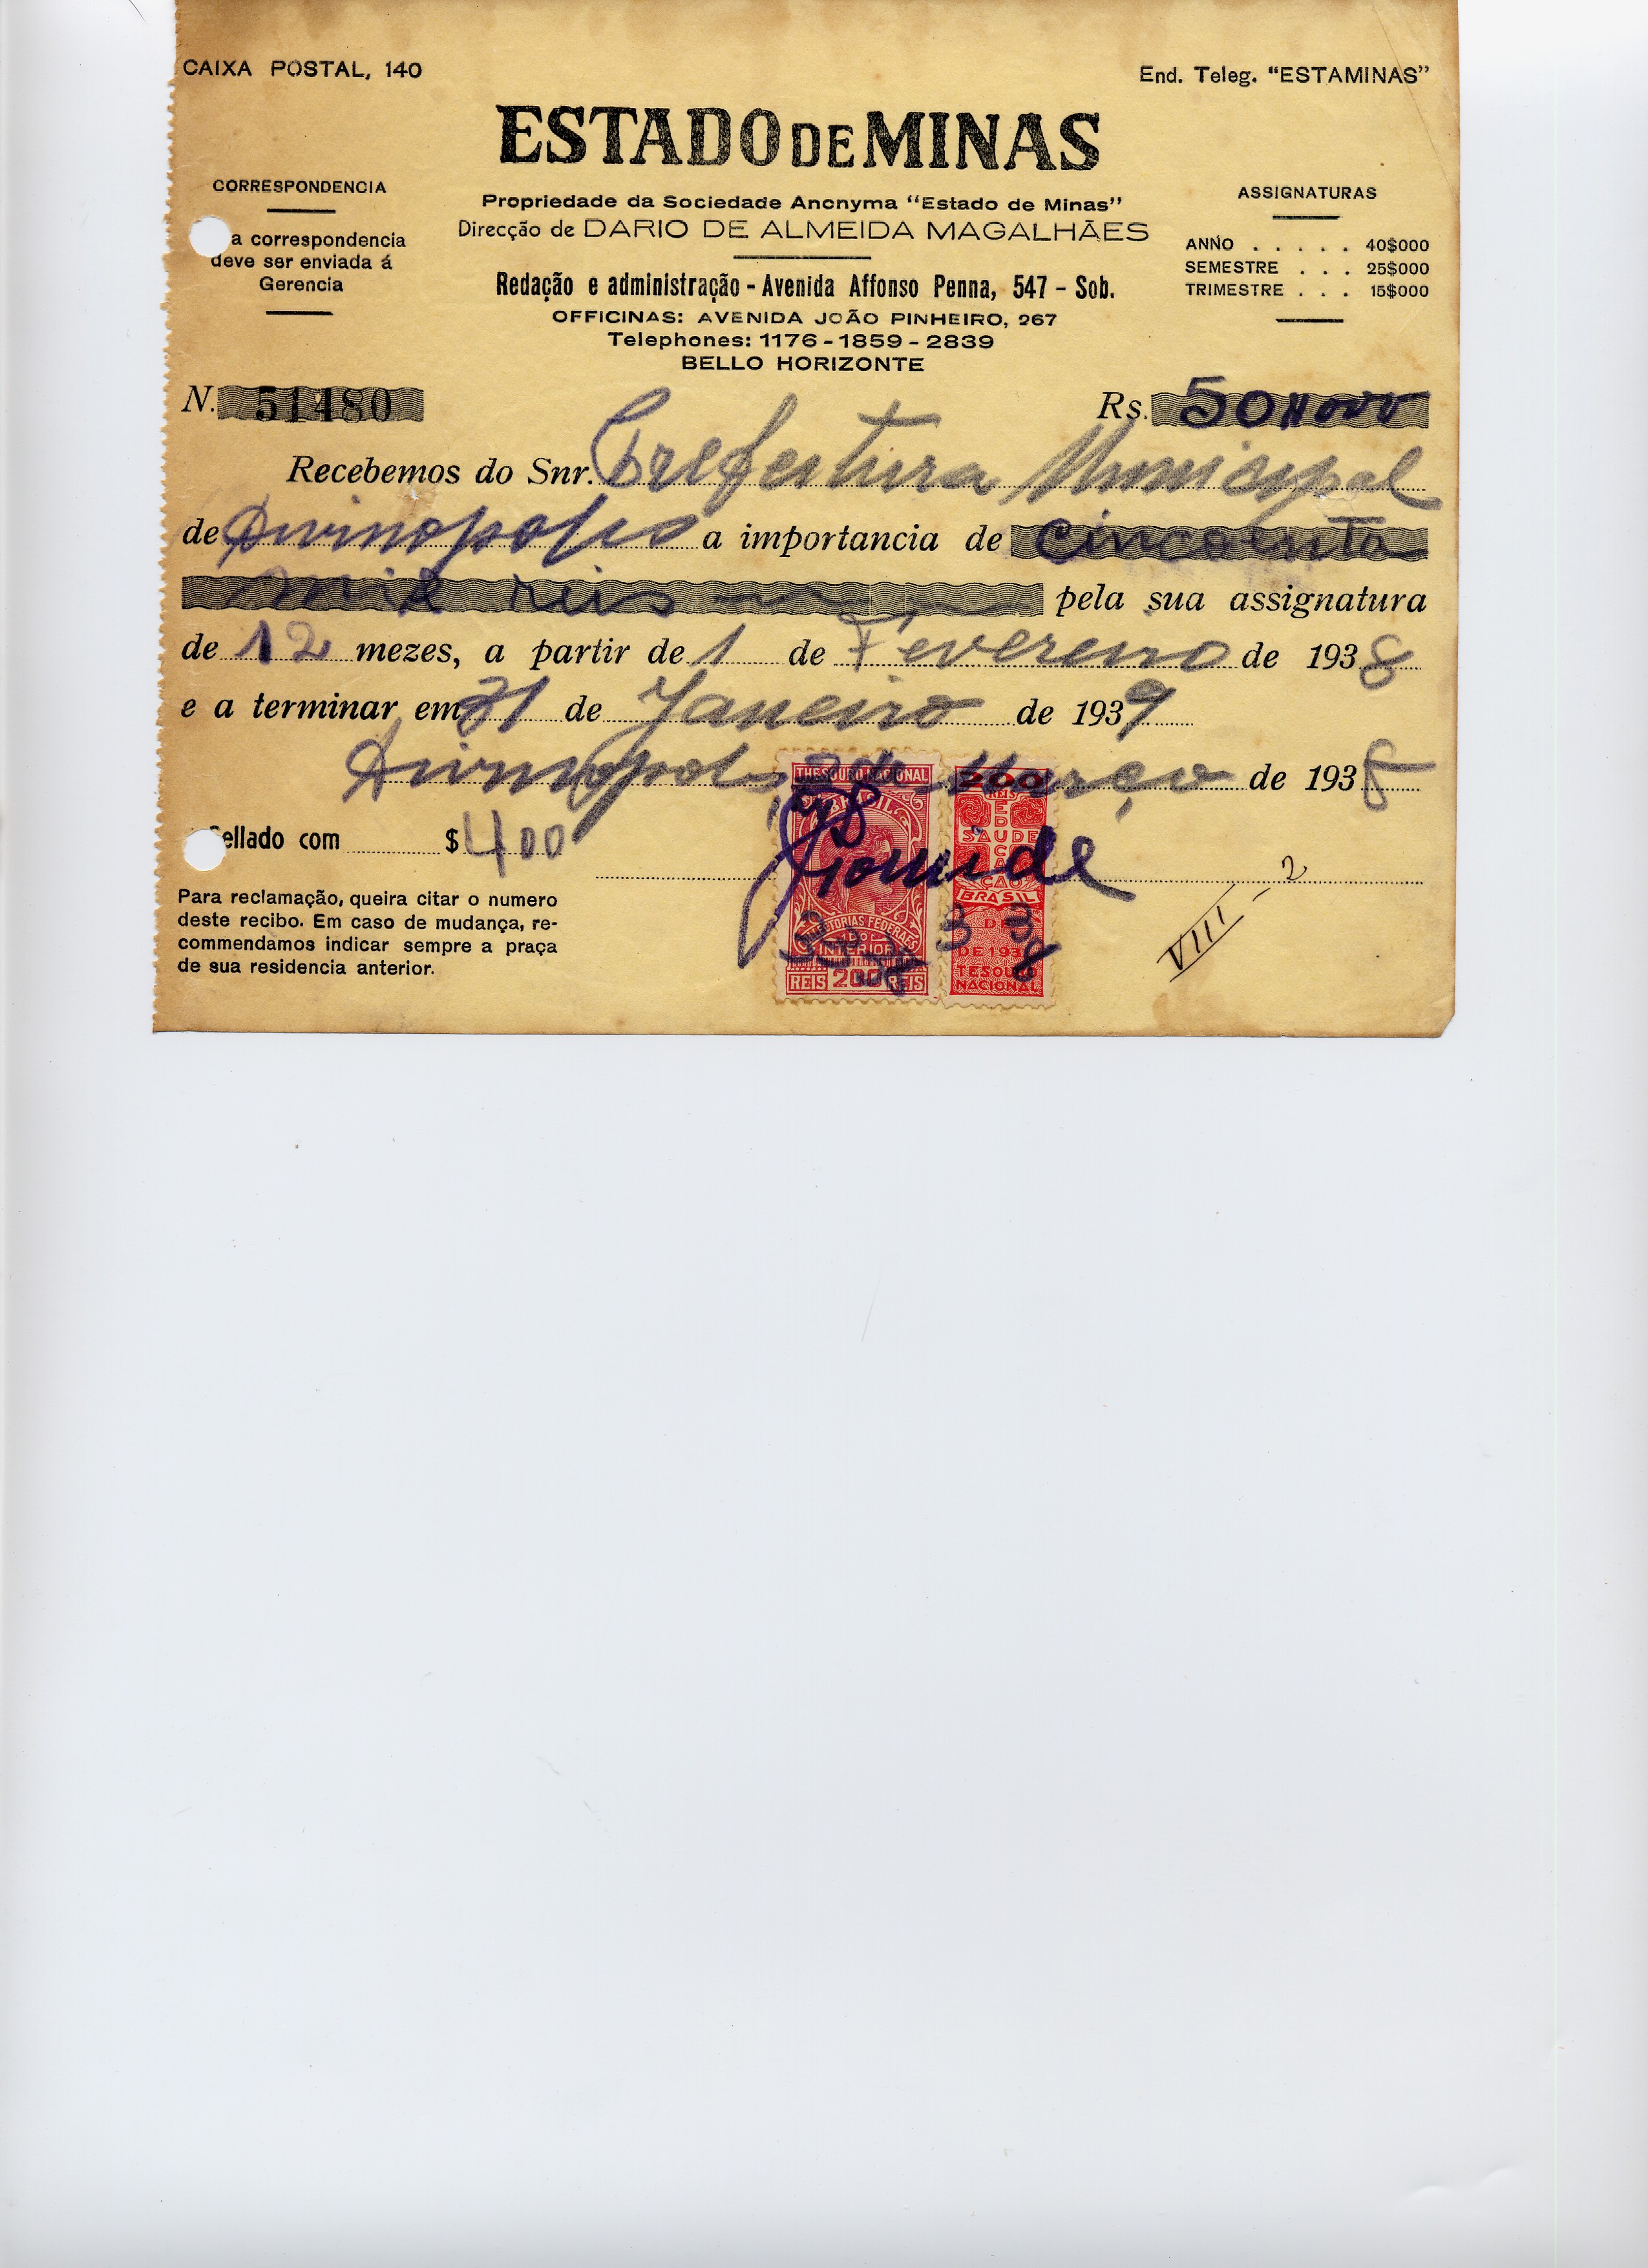 CAIXA POSTAL, 140
End. Teleg. "ESTAMINAS"
ESTADO DE MINAS
CORRESPONDENCIA
a correspondencia
deve ser enviada á
Gerencia
Propriedade da Sociedade Anonyma "Estado de Minas"
Direcção de DARIO DE ALMEIDA MAGALHÃES
Redação e administração - Avenida Affonso Penna, 547 - Sob.
OFFICINAS: AVENIDA JOÃO PINHEIRO, 267
Telephones: 1176 - 1859 - 2839
BELLO HORIZONTE
ASSIGNATURAS
ANNO . . . . . 40$000
SEMESTRE . . . 25$000
TRIMESTRE . . . 15$000
N. 51480
Rs. 50$000
Recebemos do Snr. Prefeitura Municipal
de Divinopolis a importancia de cincoenta
mil reis pela sua assignatura
de 12 mezes, a partir de 1 de Fevereiro de 1938
e a terminar em 31 de Janeiro de 1939
Divinopolis de Março de 1938
ellado com $400
Gomide
Para reclamação, queira citar o numero
deste recibo. Em caso de mudança, re-
commendamos indicar sempre a praça
de sua residencia anterior.
THESOURO NACIONAL
BRASIL
FEDERAES
INTERIOR
REIS 200 REIS
200
REIS
EDUCAÇÃO
SAUDE
BRASIL
TESOURO
NACIONAL
3 38
VIII - 2